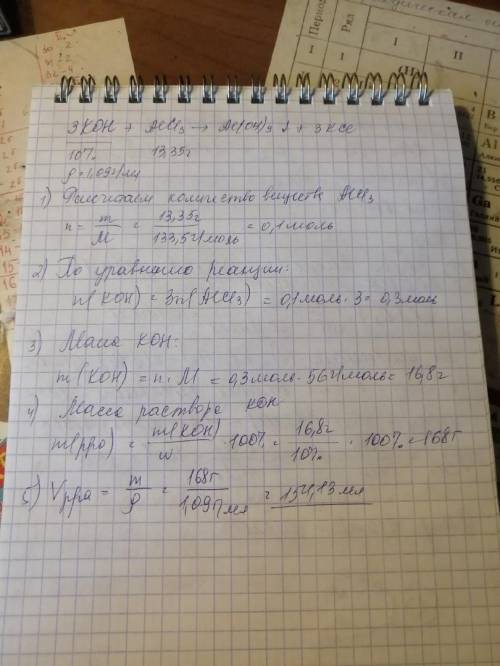 Период
Ряд
I
II
I
1
3KOH + AlCl₃ → Al(OH)₃ ↓ + 3KCl
10% 13,35г
ρ = 1,09 г/мл
1) Рассчитаем количество веществ AlCl₃
n = m/M = 13,35г/133,5 г/моль = 0,1 моль
2) По уравнению реакции:
n(KOH) = 3n(AlCl₃) = 0,1моль · 3 = 0,3 моль
3) Масса KOH:
m(KOH) = n · M = 0,3 моль · 56 г/моль = 16,8 г
4) Масса раствора KOH
m(рра) = m(KOH)/w · 100% = 16,8г/10% · 100% = 168г
5) Vрра = m/ρ = 168г/1,09г/мл = 154,13 мл